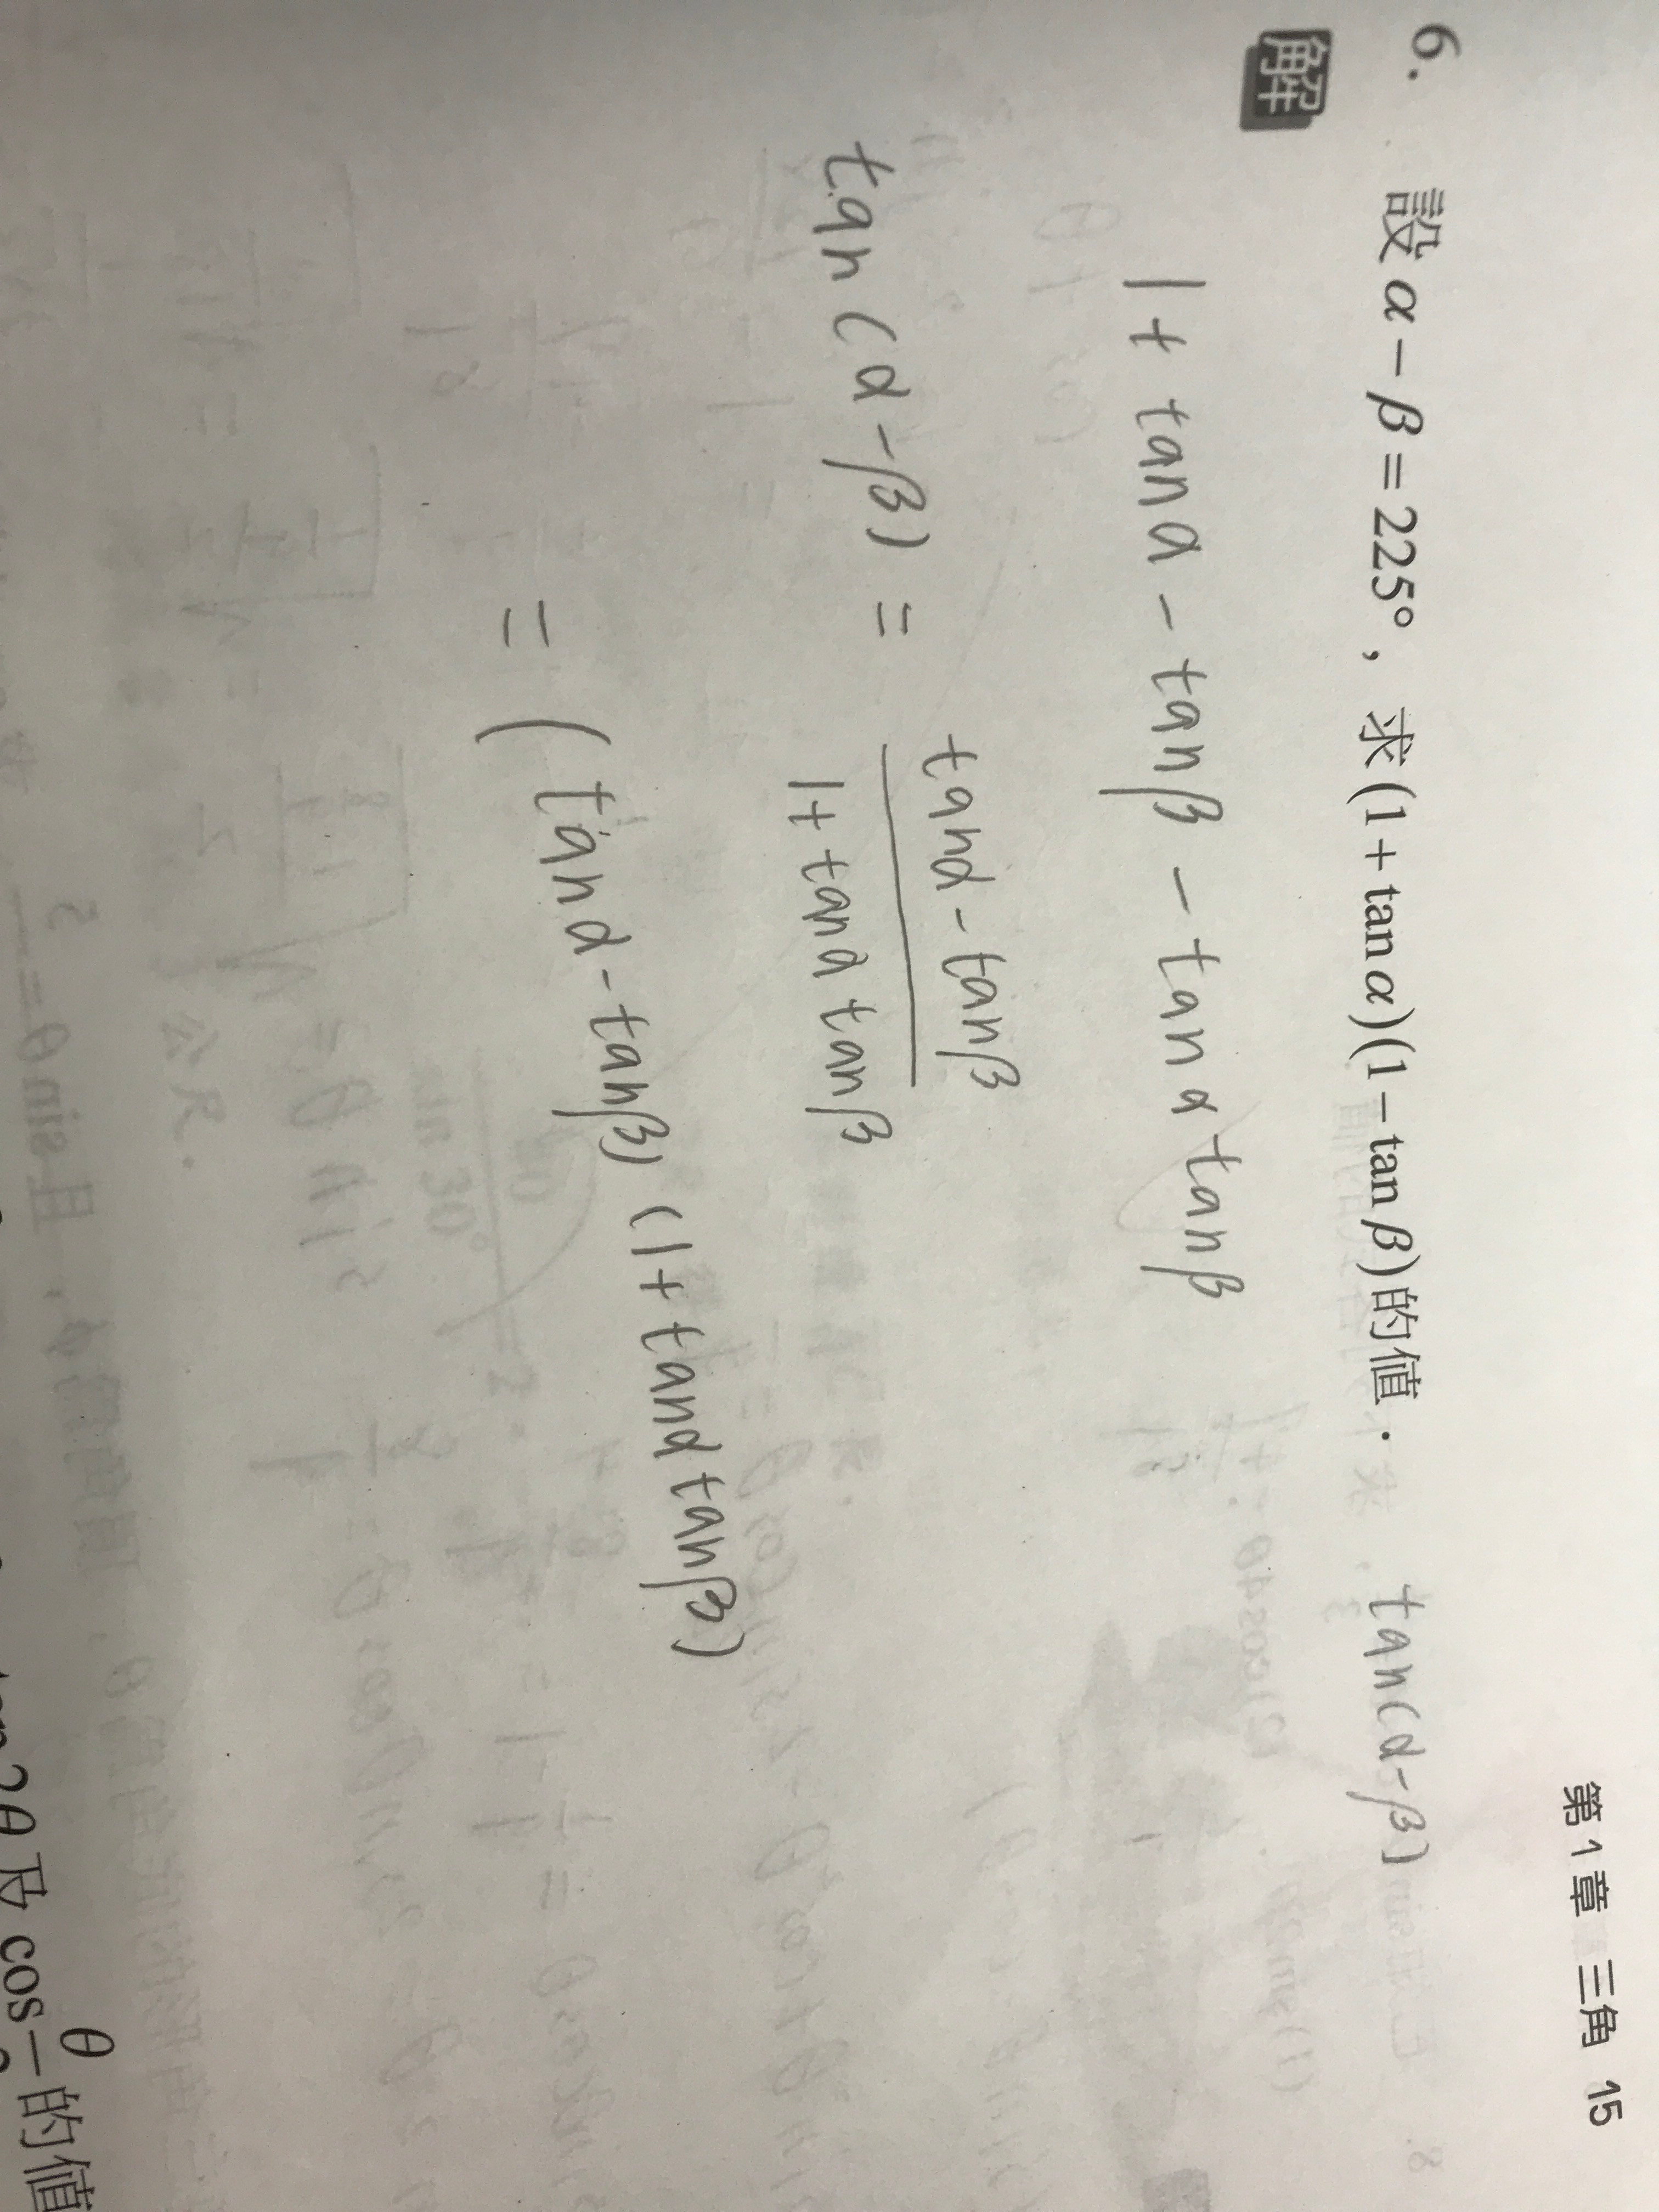 第1章 三角 15
6. 設 α − β = 225°，求 (1 + tan α)(1 − tan β) 的值． tan(α-β)
解
1 + tanα - tanβ - tanα tanβ
tan(α-β) = \frac{tanα - tanβ}{1 + tanα tanβ}
= (tanα - tanβ) (1 + tanα tanβ)
tan2θ 及 cos\frac{θ}{2} 的值